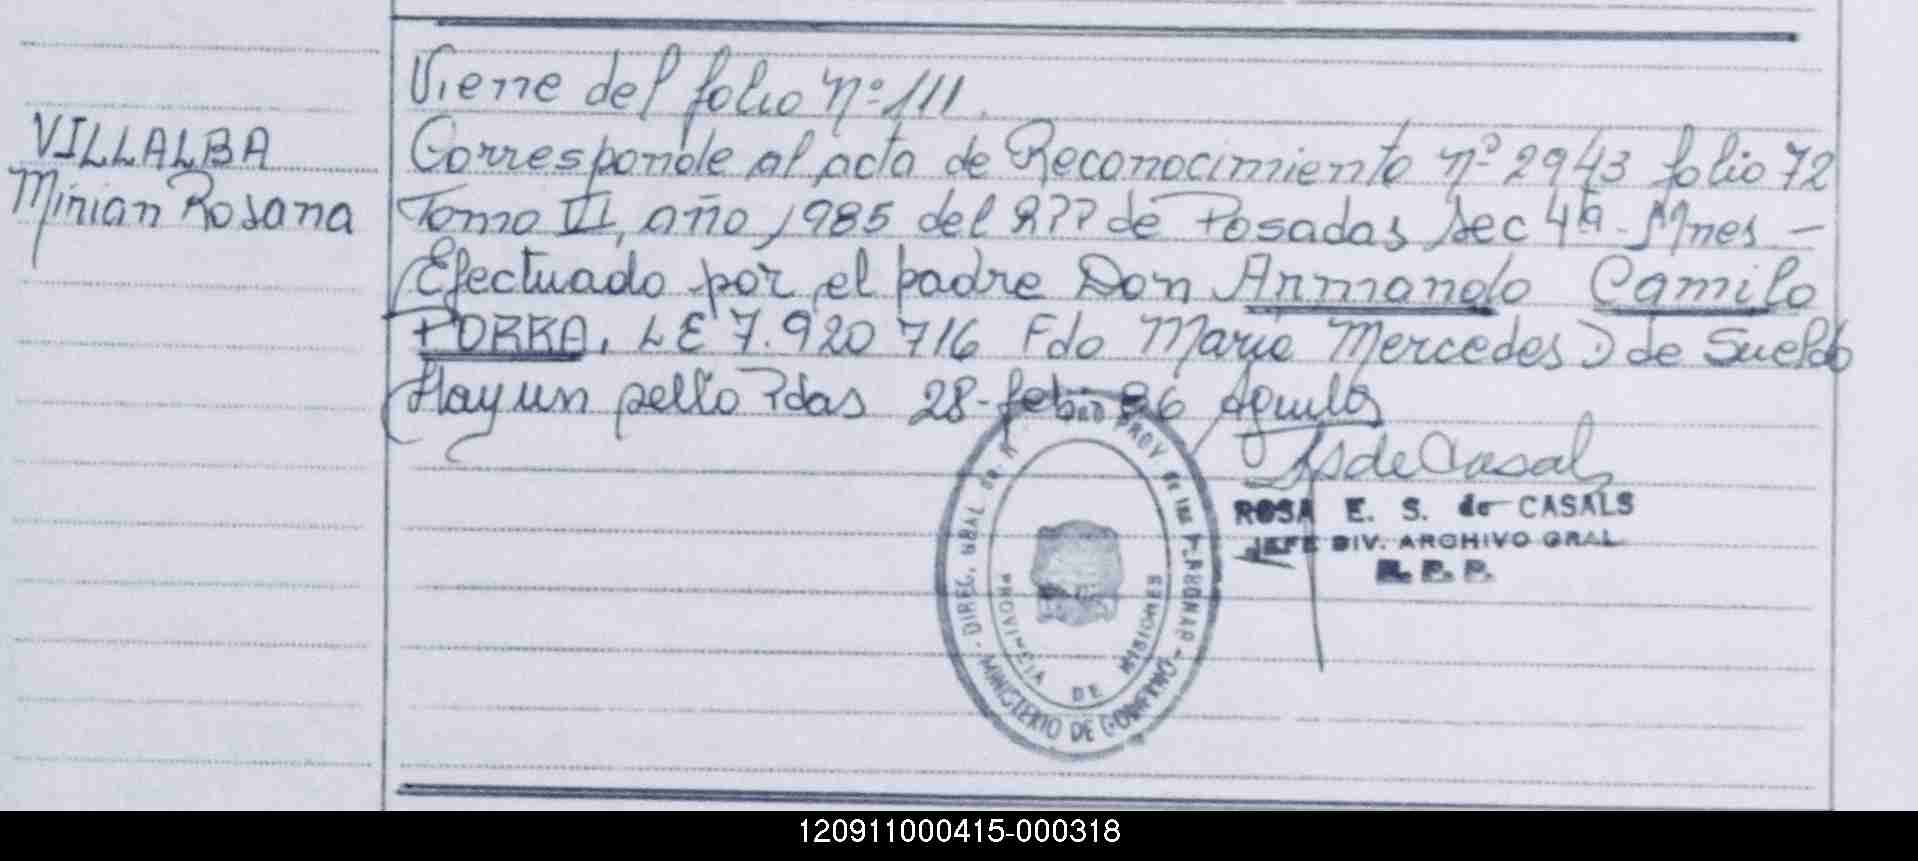 VILLALBA
Mirian Rosana
Viene del folio nº 111.
Corresponde al acta de Reconocimiento nº 2943 folio 72
Tomo VI, año 1985 del RPP de Posadas Sec 4ta. Mnes -
Efectuado por el padre Don Armando Camilo
PORRA, LE 7.920 716 Fdo Maria Mercedes D de Sueldo
Hay un sello Pdas 28-feb-86 Aguila
SdeCasals
ROSA E. S. de CASALS
JEFE DIV. ARCHIVO GRAL
R. P. P.
DIREC. GRAL de R PROV de las PERSONAS
MINISTERIO DE GOBIERNO
PROVINCIA DE MISIONES
120911000415-000318